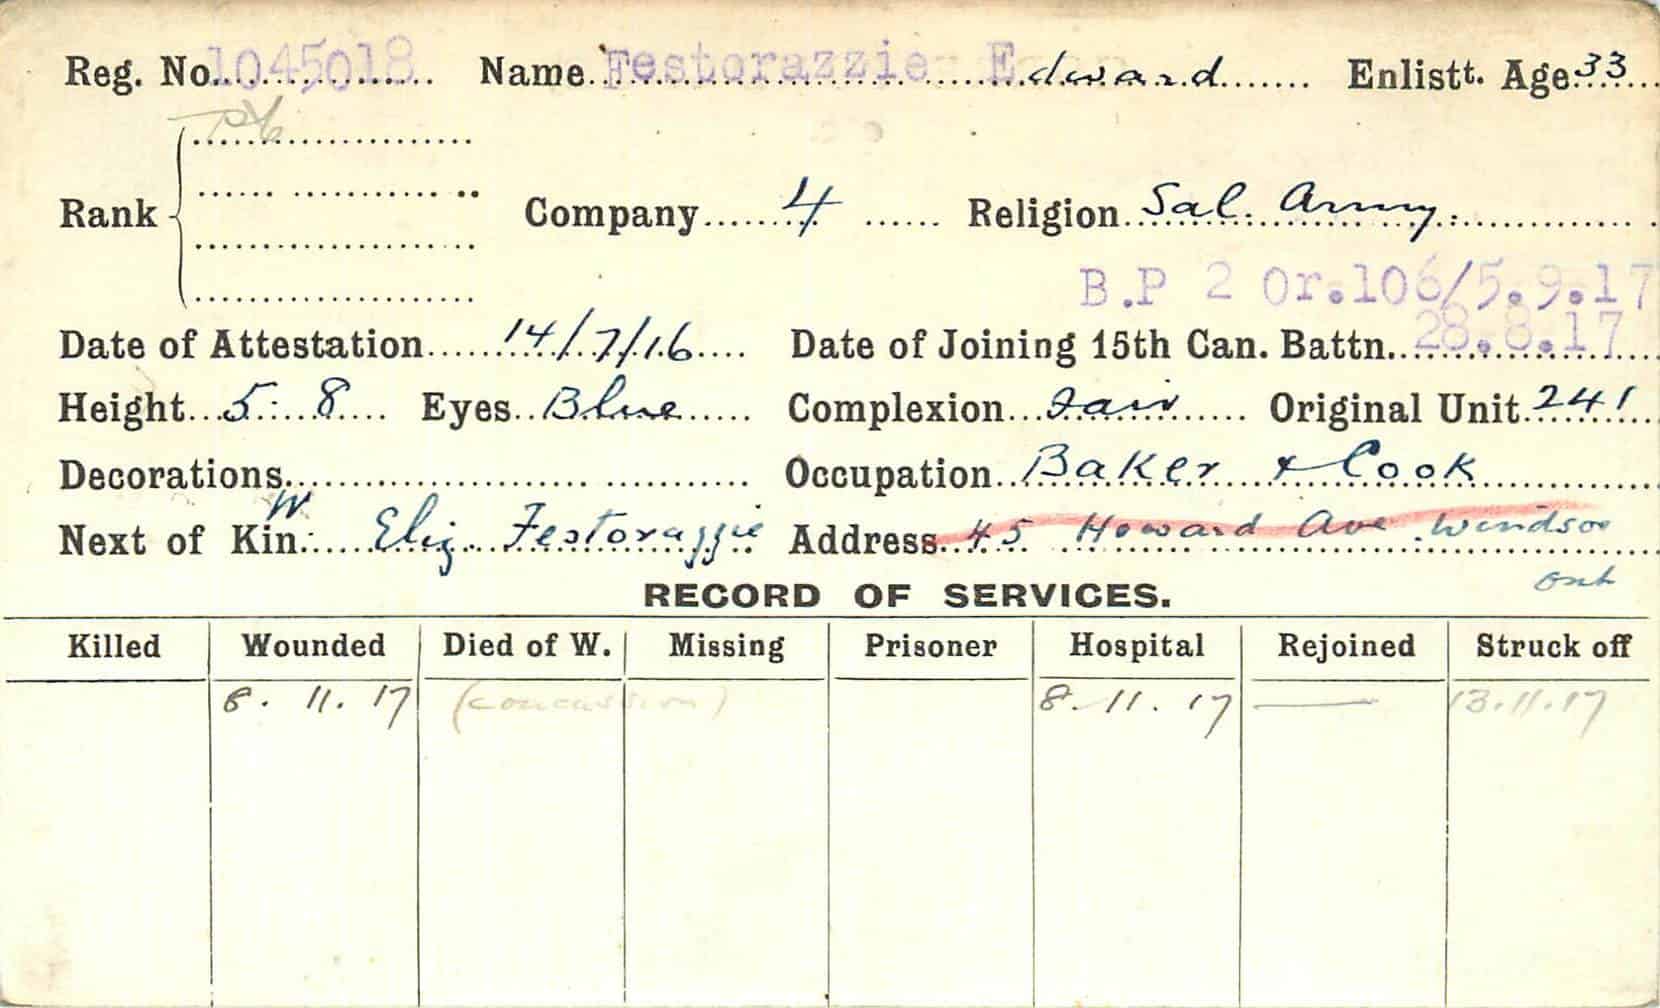 Reg. No. 1045018 Name Festorazzie Edward Enlistt. Age 33
Pte
Rank Company 4 Religion Sal. Army.
B.P 2 Or.106/5.9.17
Date of Attestation 14/7/16 Date of Joining 15th Can. Battn. 28.8.17
Height 5. 8 Eyes Blue Complexion Fair Original Unit 241
Decorations Occupation Baker & Cook
W
Next of Kin. Eliz. Festorazzie Address 45 Howard Ave Windsor
Ont
RECORD OF SERVICES.
Killed Wounded Died of W. Missing Prisoner Hospital Rejoined Struck off
8. 11. 17 (concussion) 8. 11. 17 — 13.11.17